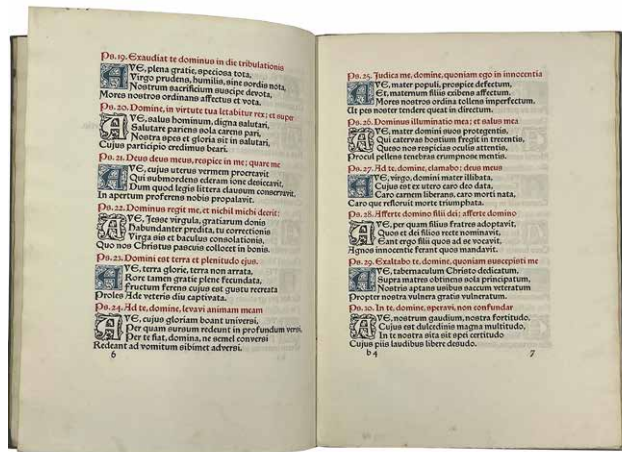 Ps. 19. Exaudiat te dominus in die tribulationis
AVE, plena gratie, speciosa tota,
Virgo prudens, humilis, sine sordis nota,
Nostrum sacrificium suscipe devota,
Mores nostros ordinans affectus et vota.
Ps. 20. Domine, in virtute tua letabitur rex; et super
AVE, salus hominum, digna salutari,
Salutare pariens sola carens pari,
Nostra spes et gloria sit in salutari,
Cujus participio credimus beari.
Ps. 21. Deus deus meus, respice in me; quare me
AVE, cujus uterus vermem procreavit
Qui submordens ederam Ione desiccavit,
Dum quod legis littera clausum conservavit.
In apertum proferens nobis propalavit.
Ps. 22. Dominus regit me, et nichil michi deerit:
AVE, Jesse virgula, gratiarum donis
Habundanter predita, tu correctionis
Virga sis et baculus consolationis,
Quo nos Christus pascuis collocet in bonis.
Ps. 23. Domini est terra et plenitudo ejus.
AVE, terra glorie, terra non arrata,
Rore tamen gratie plene fecundata,
Fructum ferens cujus est gustu recreata
Proles Ade veteris diu captivata.
Ps. 24. Ad te, domine, levavi animam meam
AVE, cujus gloriam boant universi,
Per quam sursum redeunt in profundum versi,
Per te fiat, domina, ne semel conversi
Redeant ad vomitum sibimet adversi.
6
Ps. 25. Judica me, domine, quoniam ego in innocentia
AVE, mater populi, prospice defectum,
Et, maternum filiis exibens affectum,
Mores nostros ordina tollens imperfectum,
Ut pes noster tendere queat in directum.
Ps. 26. Dominus illuminatio mea; et salus mea
AVE, mater domini suos protegentis,
Qui catervas hostium fregit in tecentis,
Queso nos respicias oculis attentis,
Procul pellens tenebras erumpnose mentis.
Ps. 27. Ad te, domine, clamabo; deus meus
AVE, virgo, domini mater illibata,
Cujus est ex utero caro deo data,
Caro carnem liberans, caro morti nata,
Caro que refloruit morte triumphata.
Ps. 28. Afferte domino filii dei; afferte domino
AVE, per quam filius fratres adoptavit,
Quos et dei filios recte nominavit,
Eant ergo filii quos ad se vocavit,
Agnos innocentie ferant quos mandavit.
Ps. 29. Exaltabo te, domine, quoniam suscepisti me
AVE, tabernaculum Christo dedicatum,
Supra matres obtinens sola principatum,
Nostris aptans usibus saccum veteratum
Propter nostra vulnera gratis vulneratum.
Ps. 30. In te, domine, speravi, non confundar
AVE, nostrum gaudium, nostra fortitudo,
Cujus est dulcedinis magna multitudo,
In te nostra sita sit spei certitudo
Cujus piis laudibus libere desudo.
b 4
7